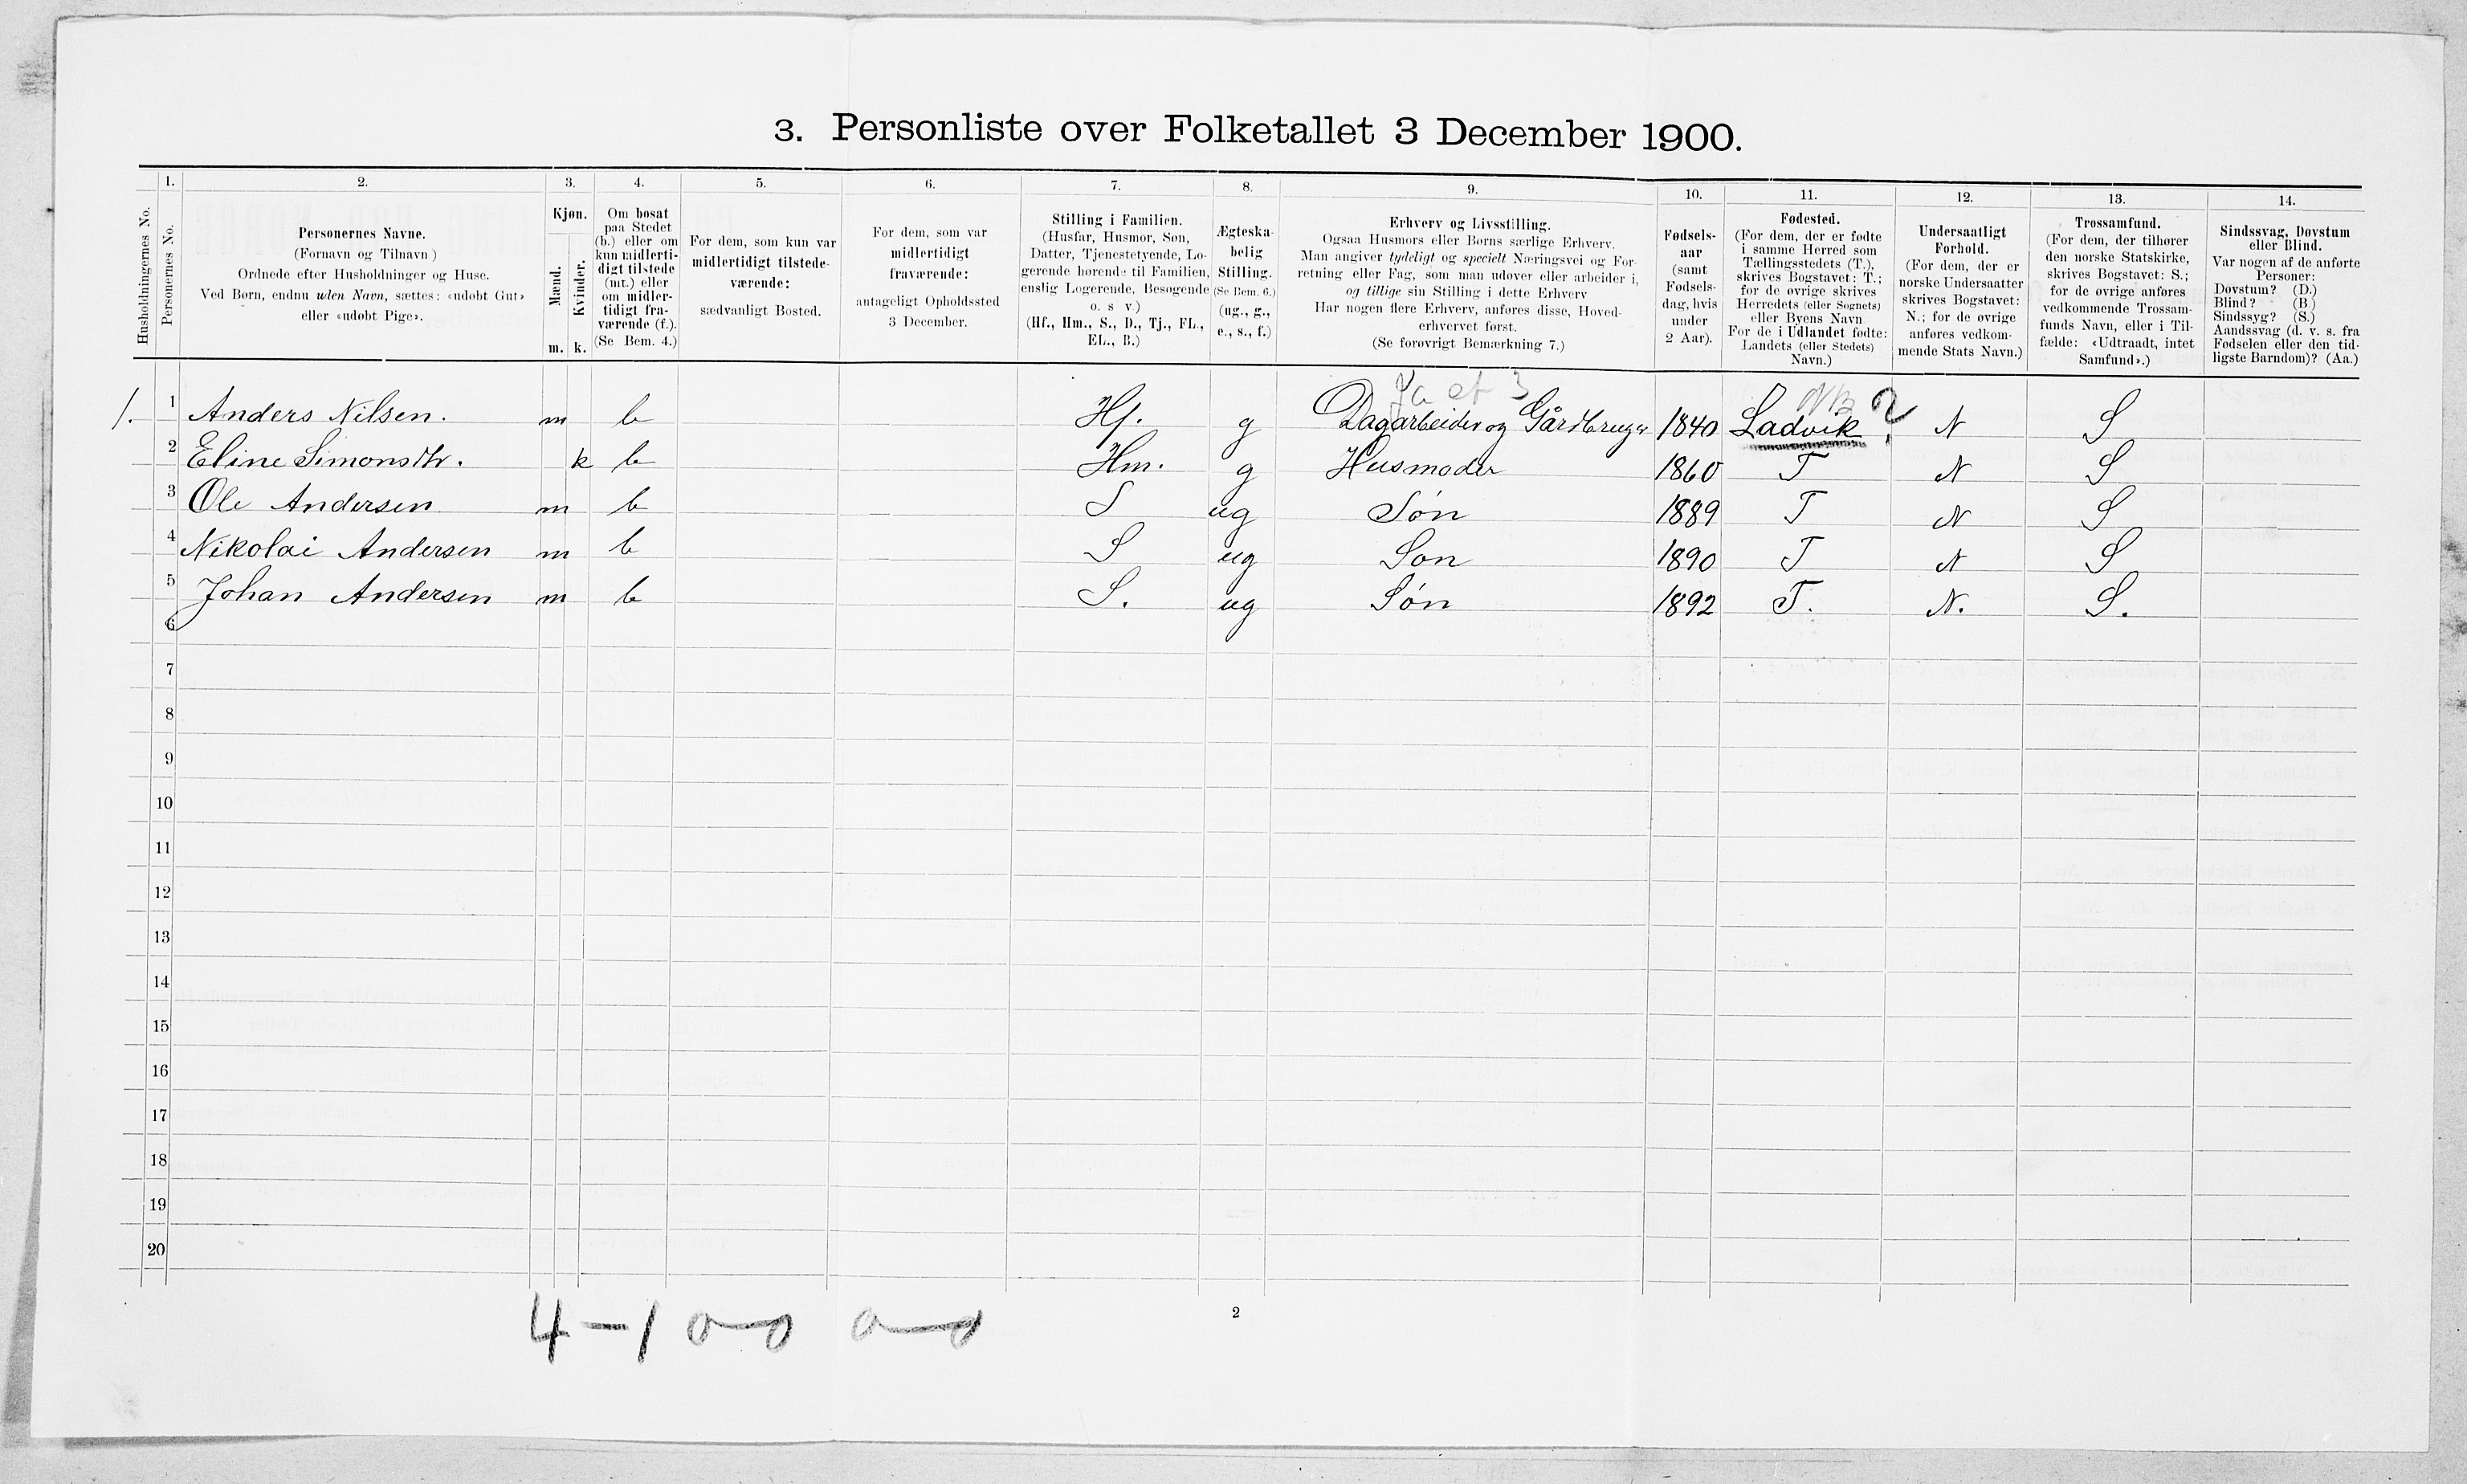 3. Personliste over Folketallet 3 December 1900.
Husholdningernes No.
1.
Personernes No.
2.
Personernes Navne.
(Fornavn og Tilnavn)
Ordnede efter Husholdninger og Huse.
Ved Børn, endnu uden Navn, sættes: «udøbt Gut»
eller «udøbt Pige».
3.
Kjøn.
Mænd.
Kvinder.
m. k.
4.
Om bosat
paa Stedet
(b.) eller om
kun midlerti-
digt tilstede
(mt.) eller
om midler-
tidigt fra-
værende (f.).
(Se Bem. 4.)
5.
For dem, som kun var
midlertidigt tilstede-
værende:
sædvanligt Bosted.
6.
For dem, som var
midlertidigt
fraværende:
antageligt Opholdssted
3 December.
7.
Stilling i Familien.
(Husfar, Husmor, Søn,
Datter, Tjenestetyende, Lo-
gerende hørende til Familien,
enslig Logerende, Besøgende
o. s v.)
(Hf., Hm., S., D., Tj., FL.,
EL., B.)
8.
Ægteska-
belig
Stilling.
(Se Bem. 6.)
(ug., g.,
e., s., f.)
9.
Erhverv og Livsstilling.
Ogsaa Husmors eller Børns særlige Erhverv.
Man angiver tydeligt og specielt Næringsvei og For-
retning eller Fag, som man udøver eller arbeider i,
og tillige sin Stilling i dette Erhverv
Har nogen flere Erhverv, anføres disse, Hoved-
erhvervet først.
(Se forøvrigt Bemærkning 7.)
10.
Fødsels-
aar
(samt
Fødsels-
dag, hvis
under
2 Aar).
11.
Fødested.
(For dem, der er fødte
i samme Herred som
Tællingsstedets (T.),
skrives Bogstavet: T.;
for de øvrige skrives
Herredets (eller Sognets)
eller Byens Navn
For de i Udlandet fødte:
Landets (eller Stedets)
Navn.)
12.
Undersaatligt
Forhold.
(For dem, der er
norske Undersaatter
skrives Bogstavet:
N.; for de øvrige
anføres vedkom-
mende Stats Navn.)
13.
Trossamfund.
(For dem, der tilhører
den norske Statskirke,
skrives Bogstavet: S.;
for de øvrige anføres
vedkommende Trossam-
funds Navn, eller i Til-
fælde: «Udtraadt, intet
Samfund».)
14.
Sindssvag, Døvstum
eller Blind.
Var nogen af de anførte
Personer:
Døvstum? (D.)
Blind? (B.)
Sindssyg? (S.)
Aandssvag (d. v. s. fra
Fødselen eller den tid-
ligste Barndom)? (Aa.)
NB ?
1. 1 Anders Nilsen. m b Hf. g Dagarbeider og Gårdbruger 1840 Ladvik N S
2 Eline Simonsdtr. k b Hm. g Husmoder 1860 T N S
3 Ole Andersen m b S ug Søn 1889 T N S
4 Nikolai Andersen m b S ug Son 1890 T N S
5 Johan Andersen m b S. ug Søn 1892 T. N. S.
6
7
8
9
10
11
12
13
14
15
16
17
18
19
20
4 – 1 0–0 0–0
2